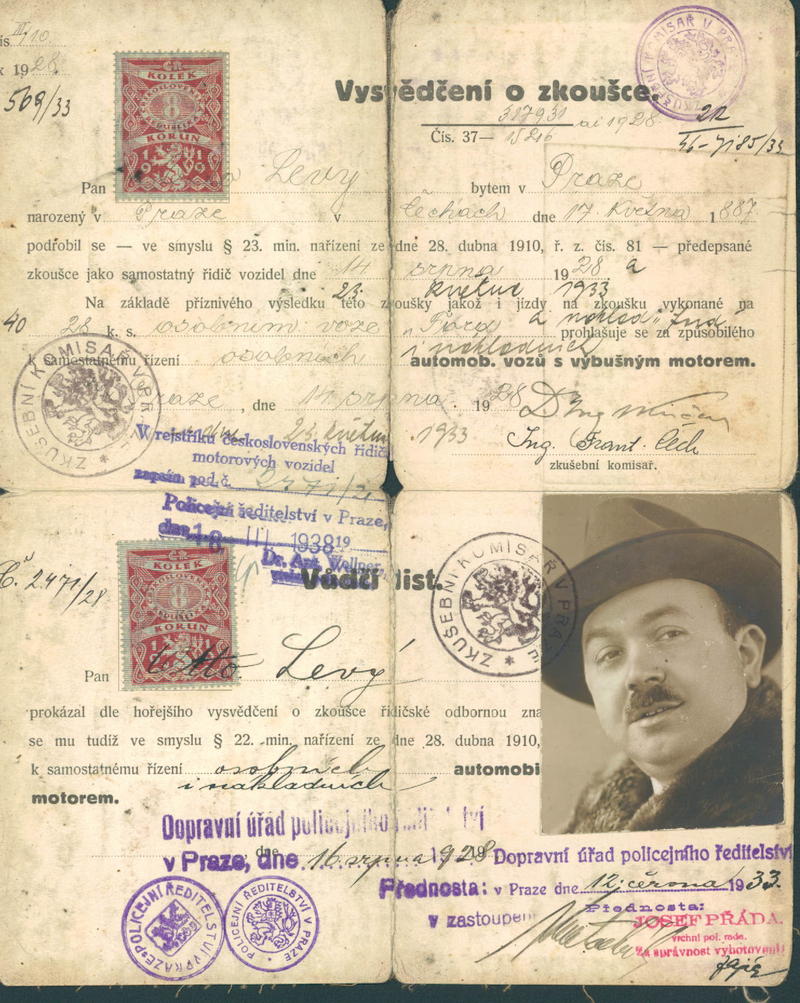 III/10
1928.
569/33
ČR
KOLEK
8
KORUN
1919
ZKUŠEBNÍ KOMISAŘ V PRAZE
Vysvědčení o zkoušce.
317931 ai 1928
Čís. 37— 15216
Pan Levý bytem v Praze
narozený v Praze v Čechách dne 17. května 1887
podrobil se — ve smyslu § 23. min. nařízení ze dne 28. dubna 1910, ř. z. čís. 81 — předepsané
zkoušce jako samostatný řidič vozidel dne 14 srpna 1928 a
23. květnu 1933
Na základě příznivého výsledku této zkoušky jakož i jízdy na zkoušku vykonané na
40 28 k. s. osobním voze „Ford" a náklad. prohlašuje se za způsobilého
k samostatnému řízení osobních i nákladních automob. vozů s výbušným motorem.
Praze, dne 14 srpna 1928
dne 23. květen 1933
Ing. Frant. Čech
zkušební komisař.
ZKUŠEBNÍ KOMISAŘ V PRAZE
W rejstříku československých řidičů
motorových vozidel
zapsán pod č. 2471/2
Policejní ředitelství v Praze,
dne 18 III 1938 19
Dr. Ant. Wellner,
Č. 2471/28
ČR
KOLEK
8
KORUN
1919
Vůdčí list.
ZKUŠEBNÍ KOMISAŘ V PRAZE
Pan Otto Levý
prokázal dle hořejšího vysvědčení o zkoušce řidičské odbornou zna
se mu tudíž ve smyslu § 22. min. nařízení ze dne 28. dubna 1910,
k samostatnému řízení osobních automobi
i nákladních
motorem.
Dopravní úřad policejního ředitelství
v Praze, dne 16. srpna 1928
Přednosta:
v zastoupení
Dopravní úřad policejního ředitelství
v Praze dne 12. června 1933.
Přednosta:
JOSEF PŘÁDA.
vrchní pol. rada.
Za správnost vyhotovení:
POLICEJNÍ ŘEDITELSTVÍ V PRAZE
POLICEJNÍ ŘEDITELSTVÍ V PRAZE